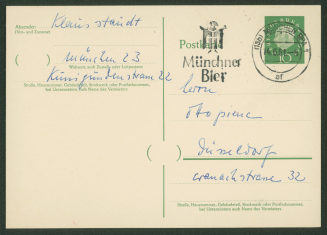 Absender:
Klaus staudt
(Vor- und Zuname)
münchen 23
Wohnort, auch Zustell- oder Leitpostamt
Kunigundenstrasse 22
Straße, Hausnummer, Gebäudeteil, Stockwerk oder Postschließfachnummer,
bei Untermietern auch Name des Vermieters
Postkarte
Münchner
Bier
10
herrn
otto piene
düsseldorf
cranachstrasse 32
Straße, Hausnummer, Gebäudeteil, Stockwerk oder Postschließfachnummer,
bei Untermietern auch Name des Vermieters